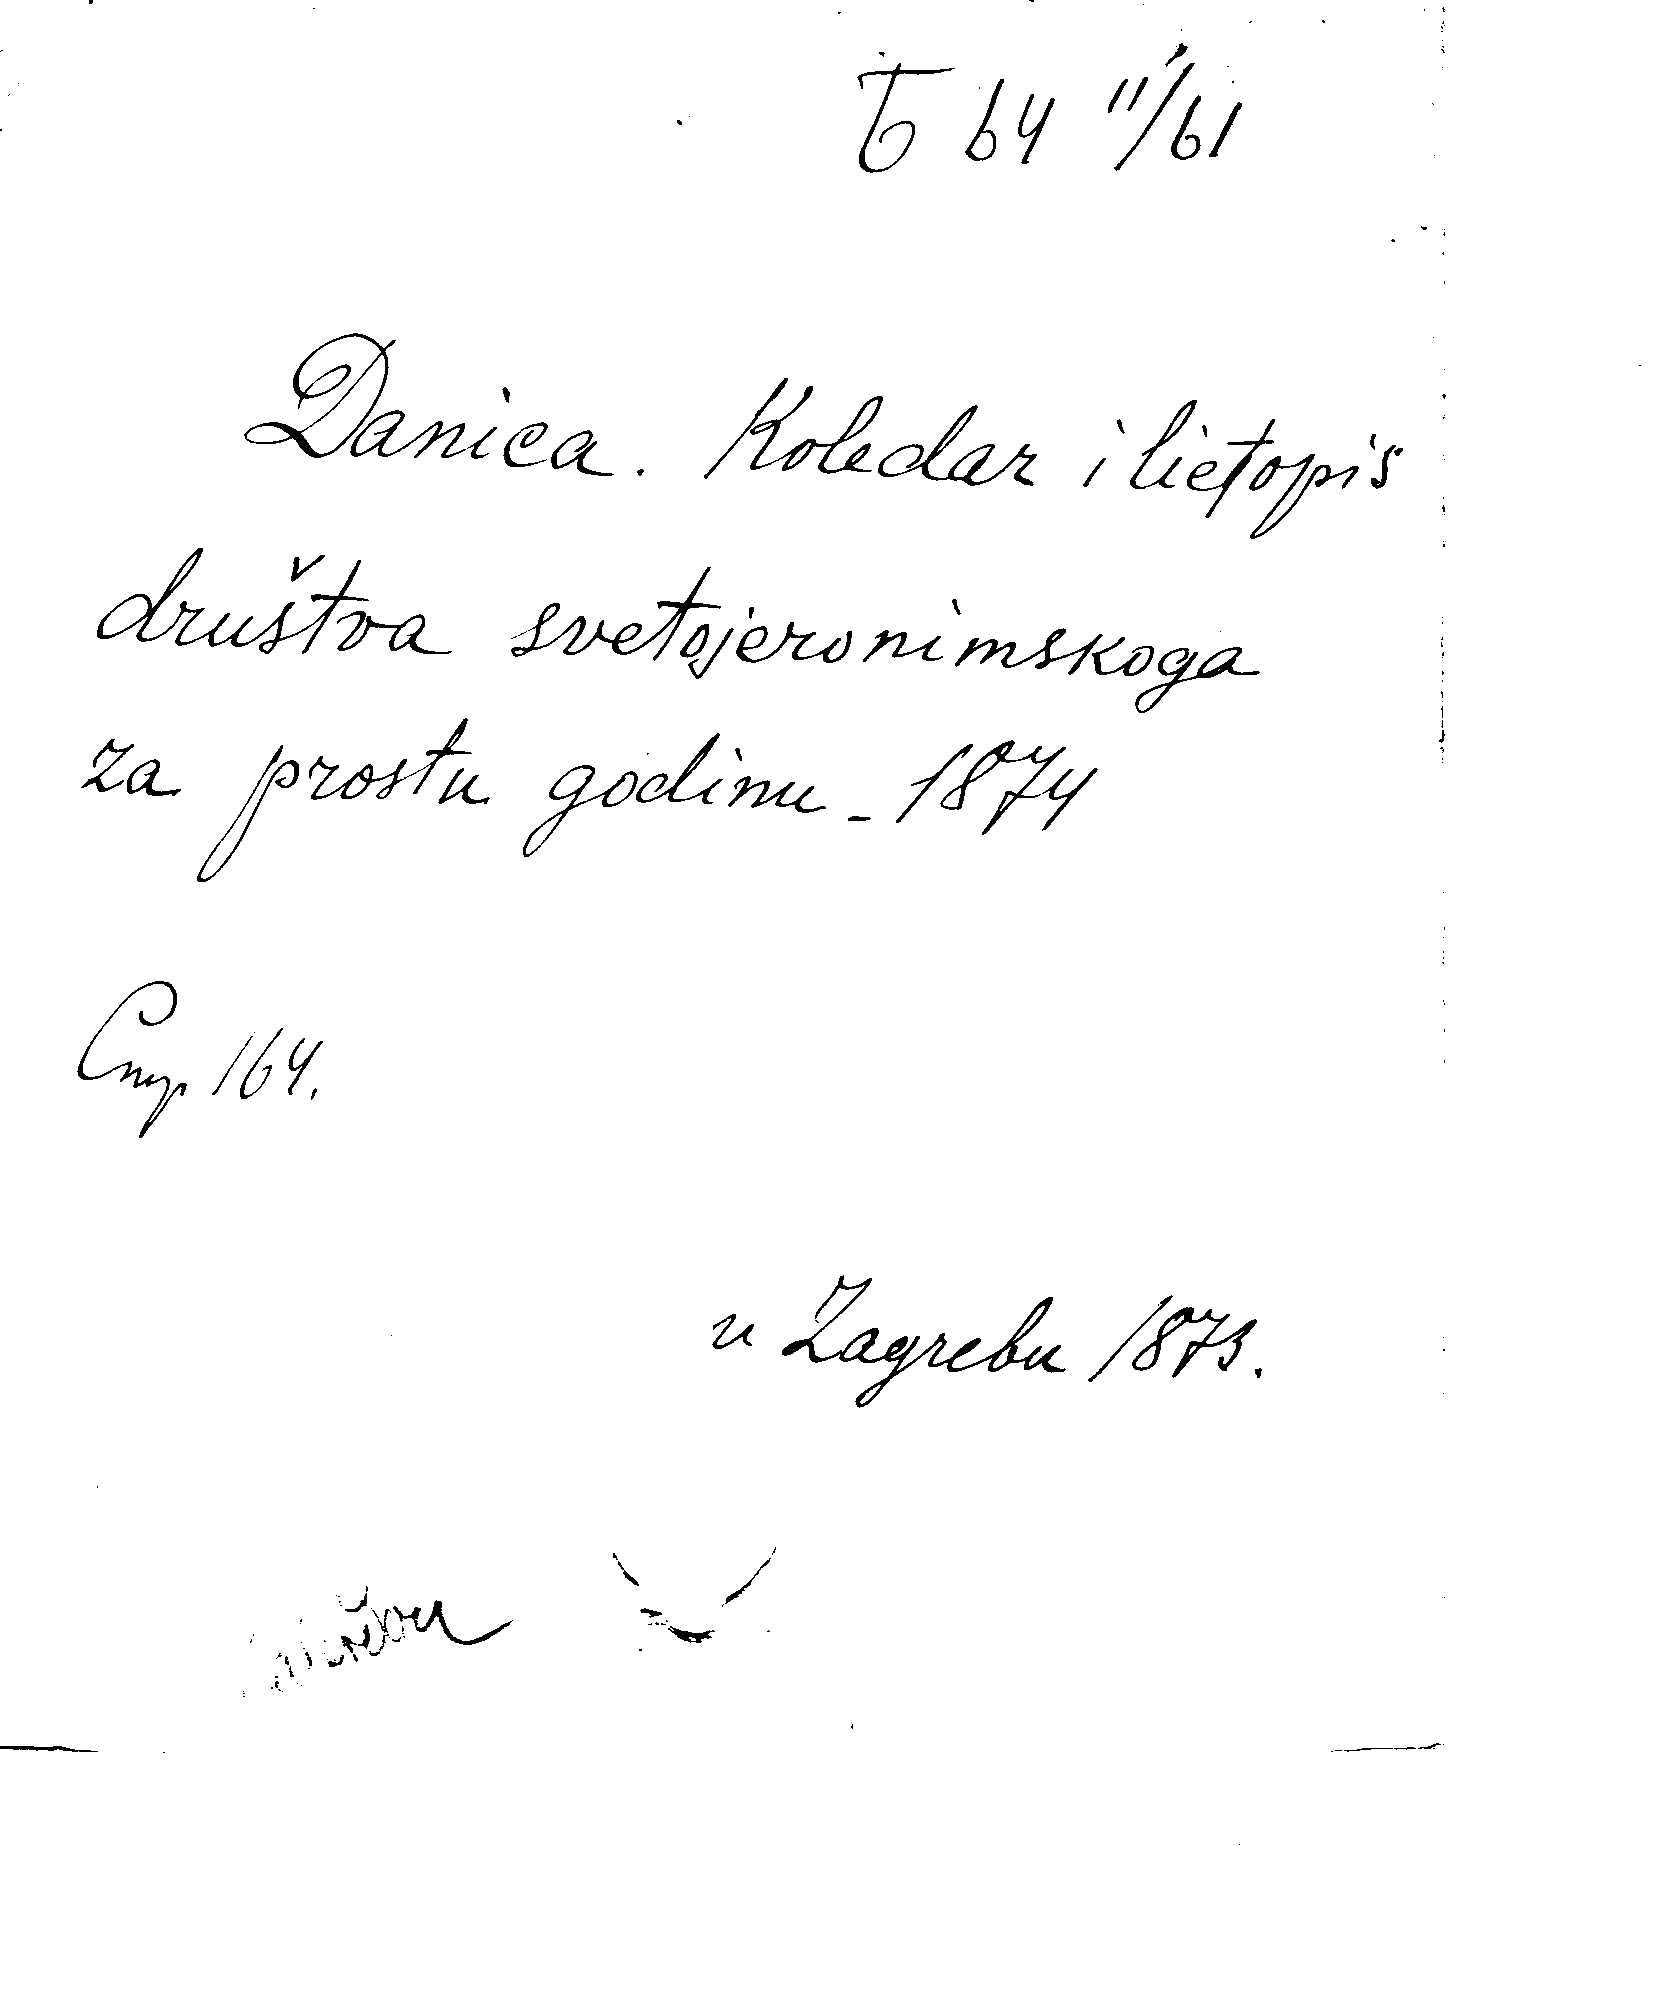 Б 64 11/61
Danica. Koledar i lietopis
društva svetojeronimskoga
za prostu godinu - 1874
Стр 164.
u Zagrebu 1873.